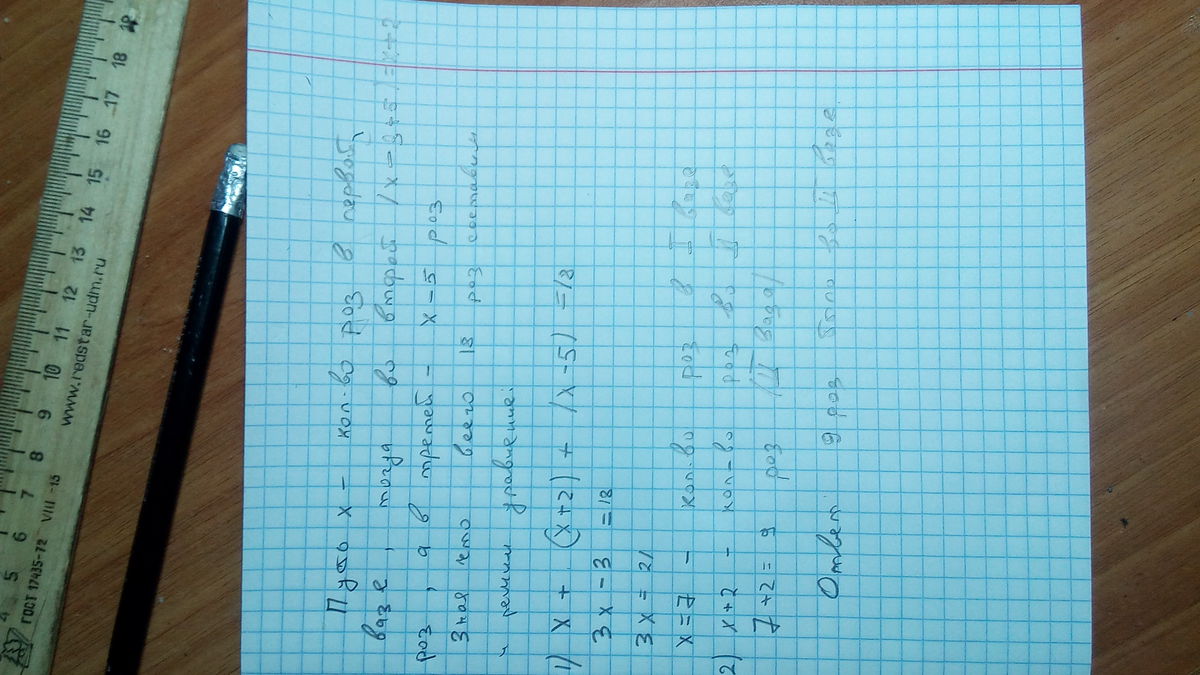 Пусть x - кол-во роз в первой
вазе, тогда во второй (x - 3 + 5) = x + 2
роз, а в третей - x - 5 роз
Зная что всего 18 роз составим
и решим уравнение:
1) x + (x+2) + (x-5) = 18
3x - 3 = 18
3x = 21
x = 7 - кол-во роз в I вазе
2) x+2 - кол-во роз во II вазе
7+2 = 9 роз (II ваза)
Ответ: 9 роз было во II вазе.
ГОСТ 17435-72 VIII-15
www.redstar-udm.ru
4 5 6 7 8 9 10 11 12 13 14 15 16 17 18 19